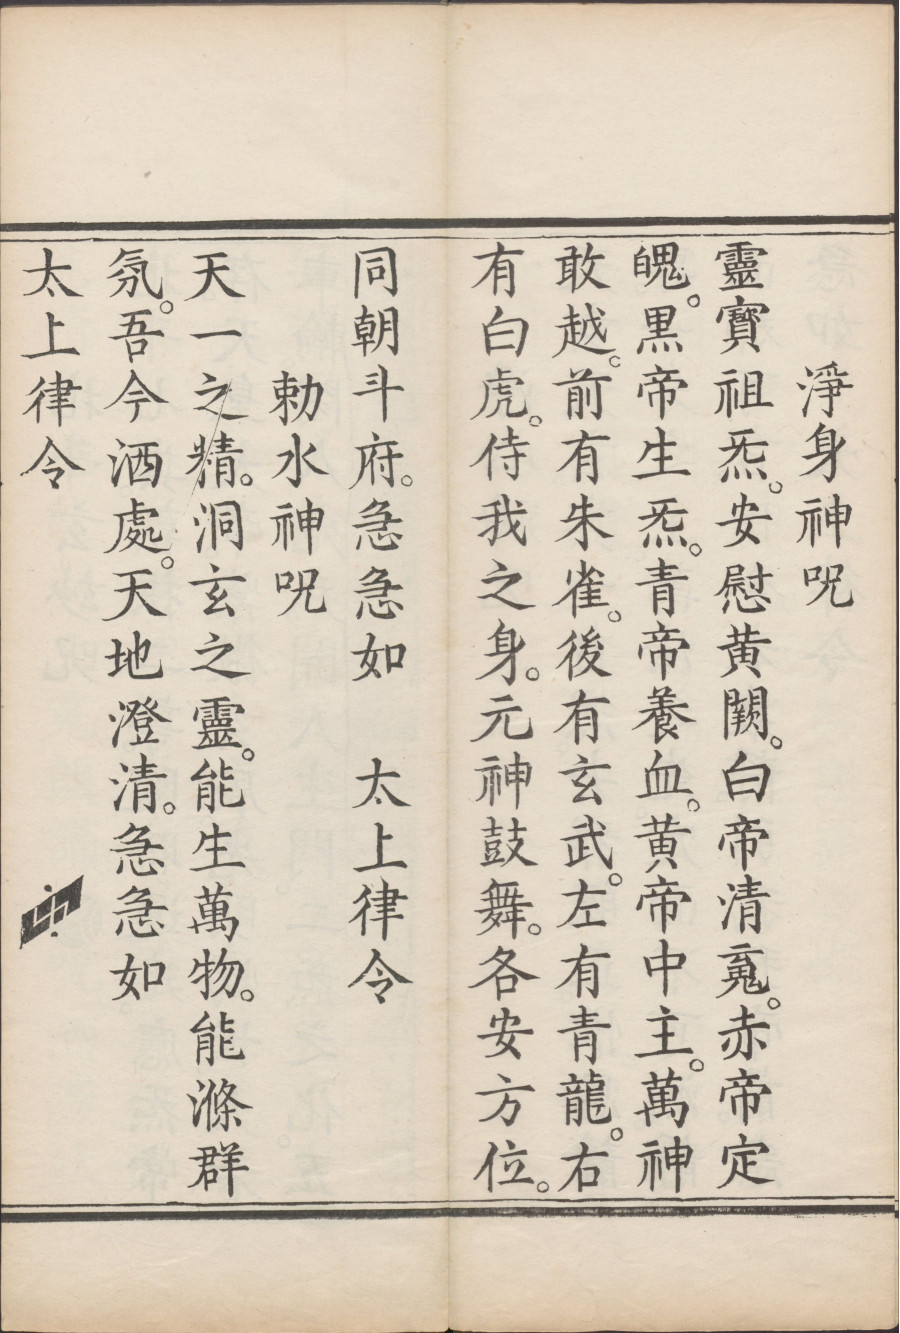 淨身神咒
靈寶祖炁。安慰黃闕。白帝清䰟。赤帝定
魄。黒帝生炁。青帝養血。黃帝中主。萬神
敢越。前有朱雀。後有玄武。左有青龍。右
有白虎。侍我之身。元神鼓舞。各安方位。
同朝斗府。急急如　太上律令
勅水神咒
天一之精。洞玄之靈。能生萬物。能滌群
氛。吾今洒處。天地澄清。急急如
太上律令